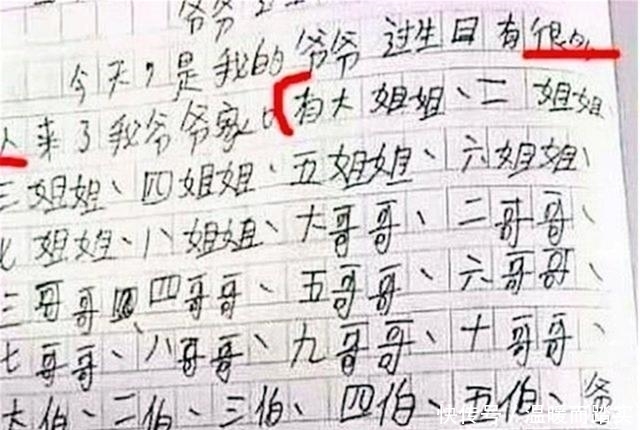 爷爷
今天,是我的爷爷过生日有很多
人来了我爷爷家,有大姐姐、二姐姐
三姐姐、四姐姐、五姐姐、六姐姐、
七姐姐、八姐姐、大哥哥、二哥哥、
三哥哥四哥哥、五哥哥、六哥哥、
七哥哥、八哥哥、九哥哥、十哥哥、
大伯、二伯、三伯、四伯、五伯、
快传号